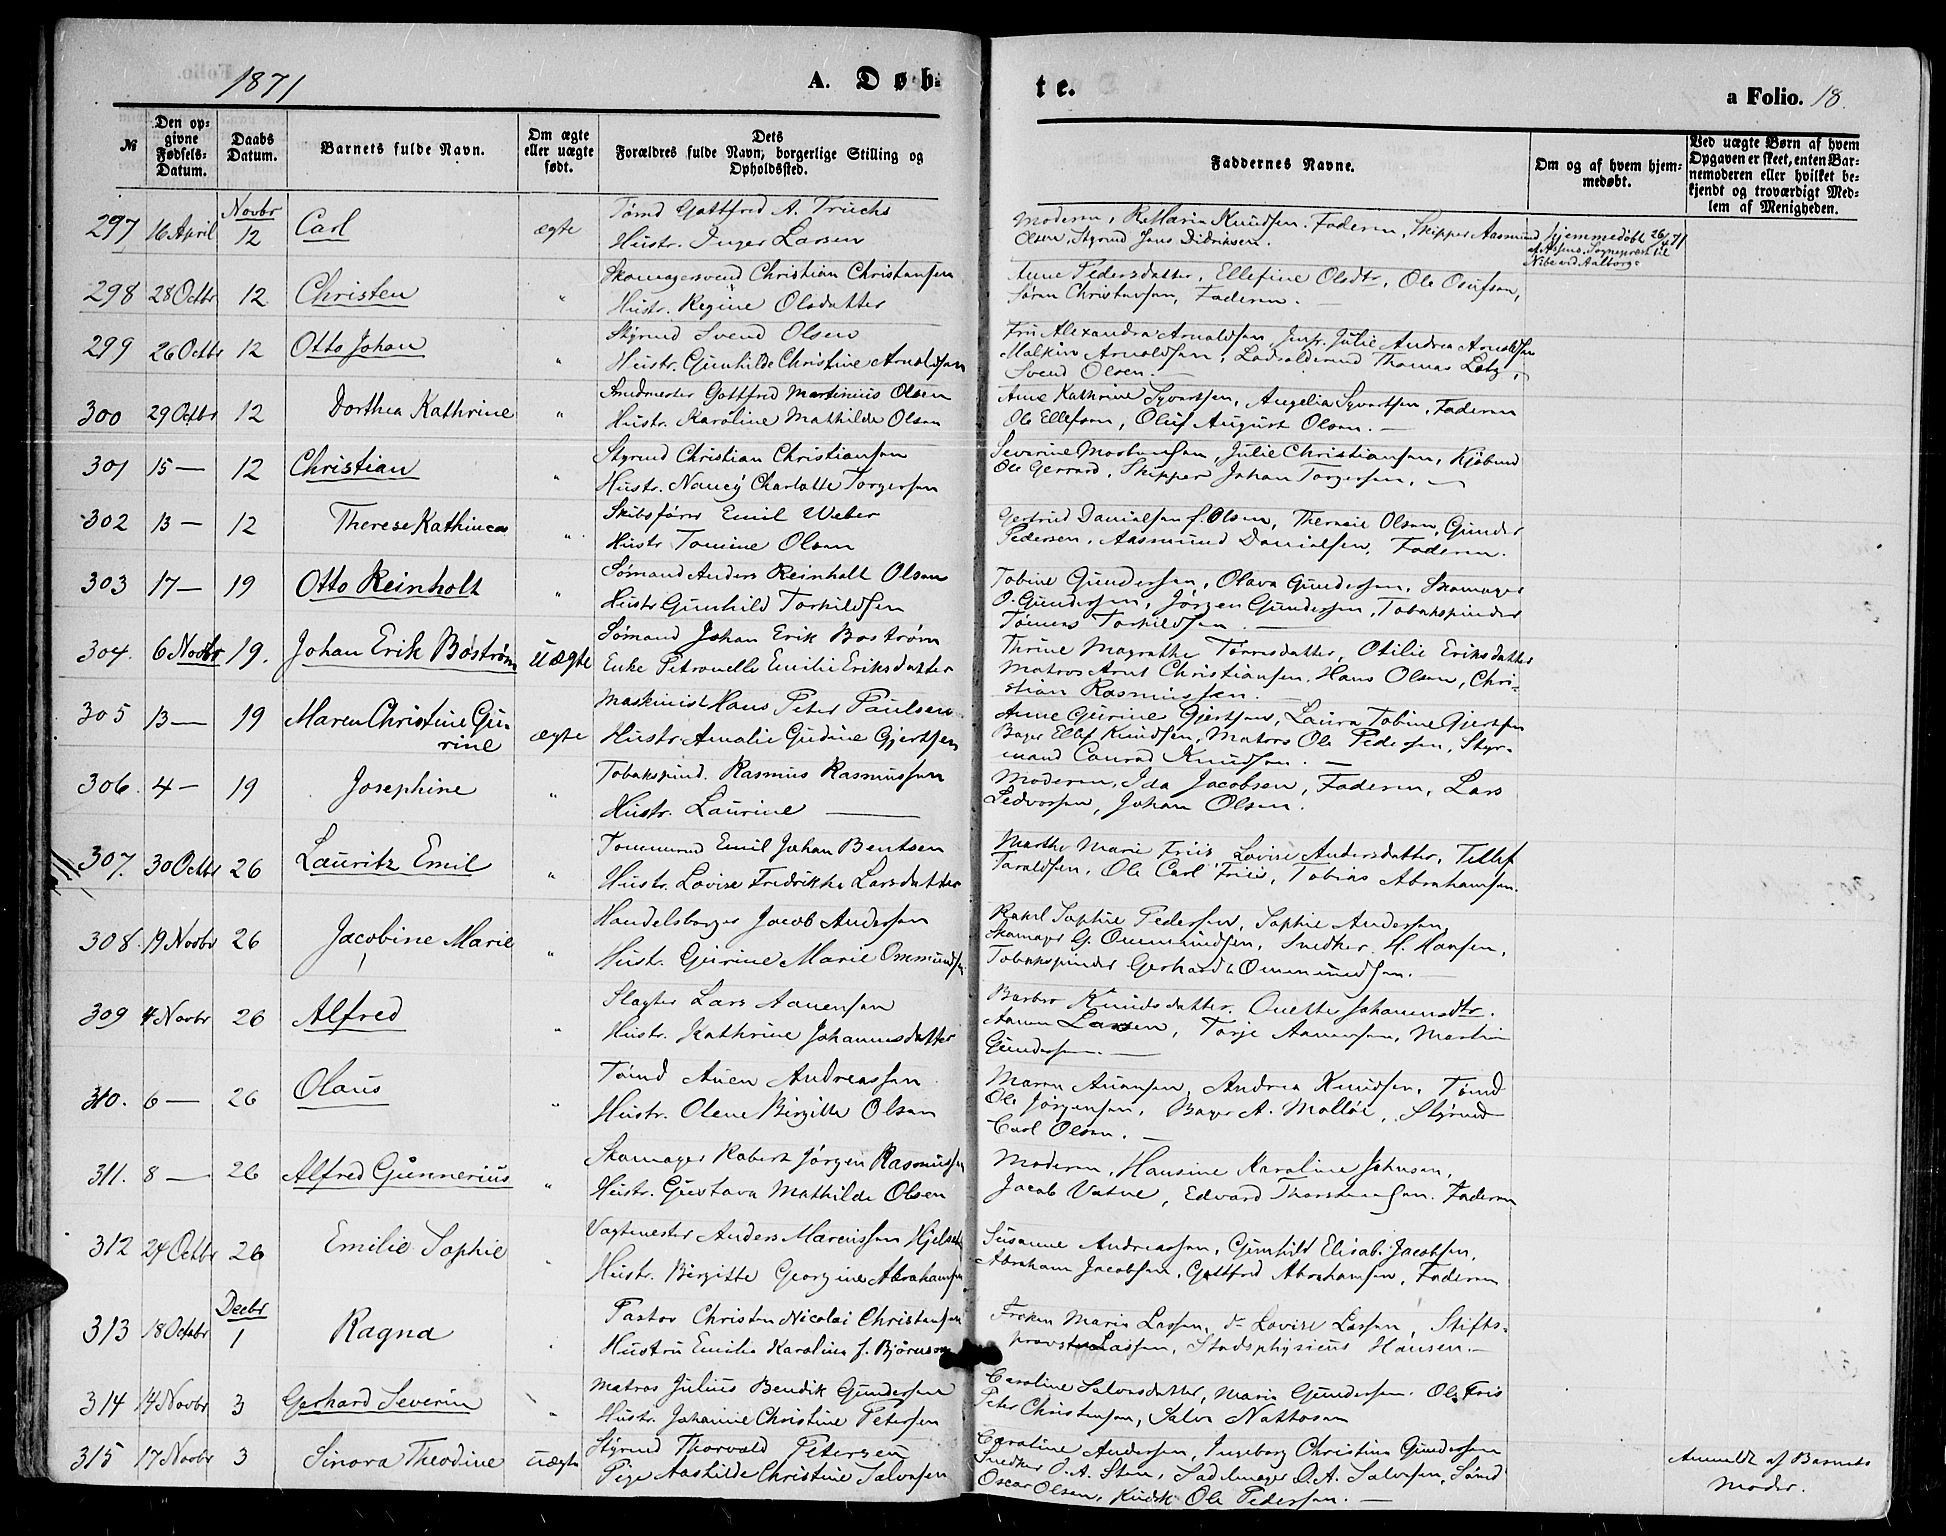 1871
A. Døb-
te.
a Folio. 18.
№
Den op-
givne
Fødsels-
Datum.
Daabs
Datum.
Barnets fulde Navn.
Om ægte
eller uægte
født.
Dets
Forældres fulde Navn, borgerlige Stilling og
Opholdssted.
Faddernes Navne.
Om og af hvem hjem-
medøbt.
Ved uægte Børn af hvem
Opgaven er skeet, enten Bar-
nemoderen eller hvilket be-
kjendt og troværdigt Med-
lem af Menigheden.
297 16 April Novbr 12 Carl ægte
Tømd Gottfred A. Truchs
Hustr. Inger Larsen
Moderen, Maria Knudsen. Faderen, Skipper Aasmund
Olsen, Styrmd Jens Didriksen.
hjemmedøbt 26/4 71
af Assens Sognepræst til
Nibe ved Aalborg
298 28 Octbr 12 Christen "
Skomagersvend Christian Christensen
Hustr. Regine Olsdatter
Anne Pedersdatter, Ellefine Olsdtr, Ole Osufsen,
Søren Christensen, Faderen.
299 26 Octbr 12 Otto Johan "
Styrmd Svend Olsen
Hustr. Gunhilde Christine Arnoldsen
Fru Alexandra Arnoldsen, Jnfr. Julie Andrea Arnoldsen
Malkin Arnoldsen, Thomas Lotz,
Svend Olsen.
300 29 Octbr 12 Dorthea Kathrine "
Smedmester Gottfred Martinius Olsen
Hustr. Karoline Mathilde Olsen
Anne Kathrine Syvertsen, Angelia Syvertsen, Faderen
Ole Ellefsen, Oluf August Olsen.
301 15 — 12 Christian "
Styrmd Christian Christiansen
Hustr. Nancy Charlotte Torgersen
Severine Mortensen, Julie Christiansen, Kjøbmd
Ole Gerrard, Skipper Johan Torgersen.
302 13 — 12 Therese Kathinca "
Skibsfører Emil Weber
Hustr Tomine Olsen
Gertrud Danielsen f. Olsen, Theresie Olsen, Gunder
Pedersen, Aasmund Danielsen, Faderen.
303 17 — 19 Otto Reinholt "
Sømand Anders Reinholt Olsen
Hustr Gunhild Torkildsen
Tobine Gundersen, Olava Gundersen, Skomager
O. Gundersen, Jørgen Gundersen, Tobakspinder
Tønnes Torkildsen
304. 6 Novbr 19. Johan Erik Bostrøm uægte
Sømand Johan Erik Bostrøm
Enke Petronelle Emilie Eriksdatter
Thrine Magrethe Tønnesdatter, Otilie Eriksdatter
Matros Arnt Christiansen, Hans Olsen, Chri-
stian Rasmussen.
305 13 — 19 Maren Christine Gu-
rine ægte
Maskinist Hans Peter Paulsen
Hustr Amalie Gudine Gjertsen
Anne Gurine Gjertsen, Laura Tobine Gjertsen
Bager Ellef Knudsen, Matros Ole Pedersen, Styr-
mand Conrad Knudsen.
306. 4 — 19 Josephine "
Tobakspind. Rasmus Rasmussen
Hustr. Laurine —
Moderen, Ida Jacobsen, Faderen, Lars
Pedersen, Johan Olsen.
307. 30 Octbr 26 Lauritz Emil "
Tømmermd Emil Johan Bentsen
Hustr. Lovise Fredrikke Larsdatter
Marthe Marie Friis, Lovise Andersdatter, Tellef
Taraldsen, Ole Carl Friis, Tobias Abrahamsen.
308. 19 Novbr 26 Jacobine Marie "
Handelsborger Jacob Andersen
Hustr. Gurine Marie Ommundsen
Rakel Sophie Pedersen, Sophie Andersen,
Skomager G. Ommundsen, Snedker H. Hansen,
Tobakspinder Gerhard Ommundsen.
309 4 Novbr 26 Alfred "
Slagter Lars Aanensen
Hustr. Kathrine Johannesdatter
Barbro Knudsdatter. Onette Johannesdtr.
Aanen Larsen, Torje Aanensen, Martin
Gundersen.
310. 6 — 26 Olaus "
Tømd Auen Andreassen
Hustr. Olene Birgitte Olsen
Maren Auensen, Andrea Knudsen, Tømd
Ole Jørgensen, Bager A. Molløe, Styrmd
Carl Olsen.
311. 8 — 26 Alfred Gunnerius "
Skomager Robert Jørgen Rasmussen
Hustr. Gustava Mathilde Olsen
Moderen, Hansine Karoline Johnsen,
Jacob Vatne, Edvard Thorstensen. Faderen
312 24 Octbr 26 Emilie Sophie "
Vagtmester Anders Marcussen
Hustr. Birgitte Georgine Abrahamsen
Susanne Andreassen, Gunhild Elisab. Jacobsen,
Abraham Jacobsen, Gottfred Abrahamsen, Faderen
313 18 Octobr Decbr 1 Ragna "
Pastor Christen Nicolai Christensen
Hustru Emilie Karoline f. Bjørnson
Frøken Maria Lassen, do Lovise Lassen, Stifts-
provst Lassen, Stadsphysicus Hansen.
314 14 Novbr 3 Gerhard Severin "
Matros Julius Bendik Gundersen
Hustr. Johanne Christine Petersen
Caroline Salvesdatter, Maria Gundersen. Ole Friis
Peter Christensen, Salve
315 17 Novbr 3 Sinora Theodine uægte
Styrmd Thorvald Petersen
Pige Aashilde Christine Salvesen
Caroline Andersen, Ingeborg Christine Gundersen
Snedker O. A. Sten, Sadelmager O. A. Salvesen, Sømd
Oscar Olsen, Kudsk Ole Pedersen.
Anmeldt af Barnets
Moder.